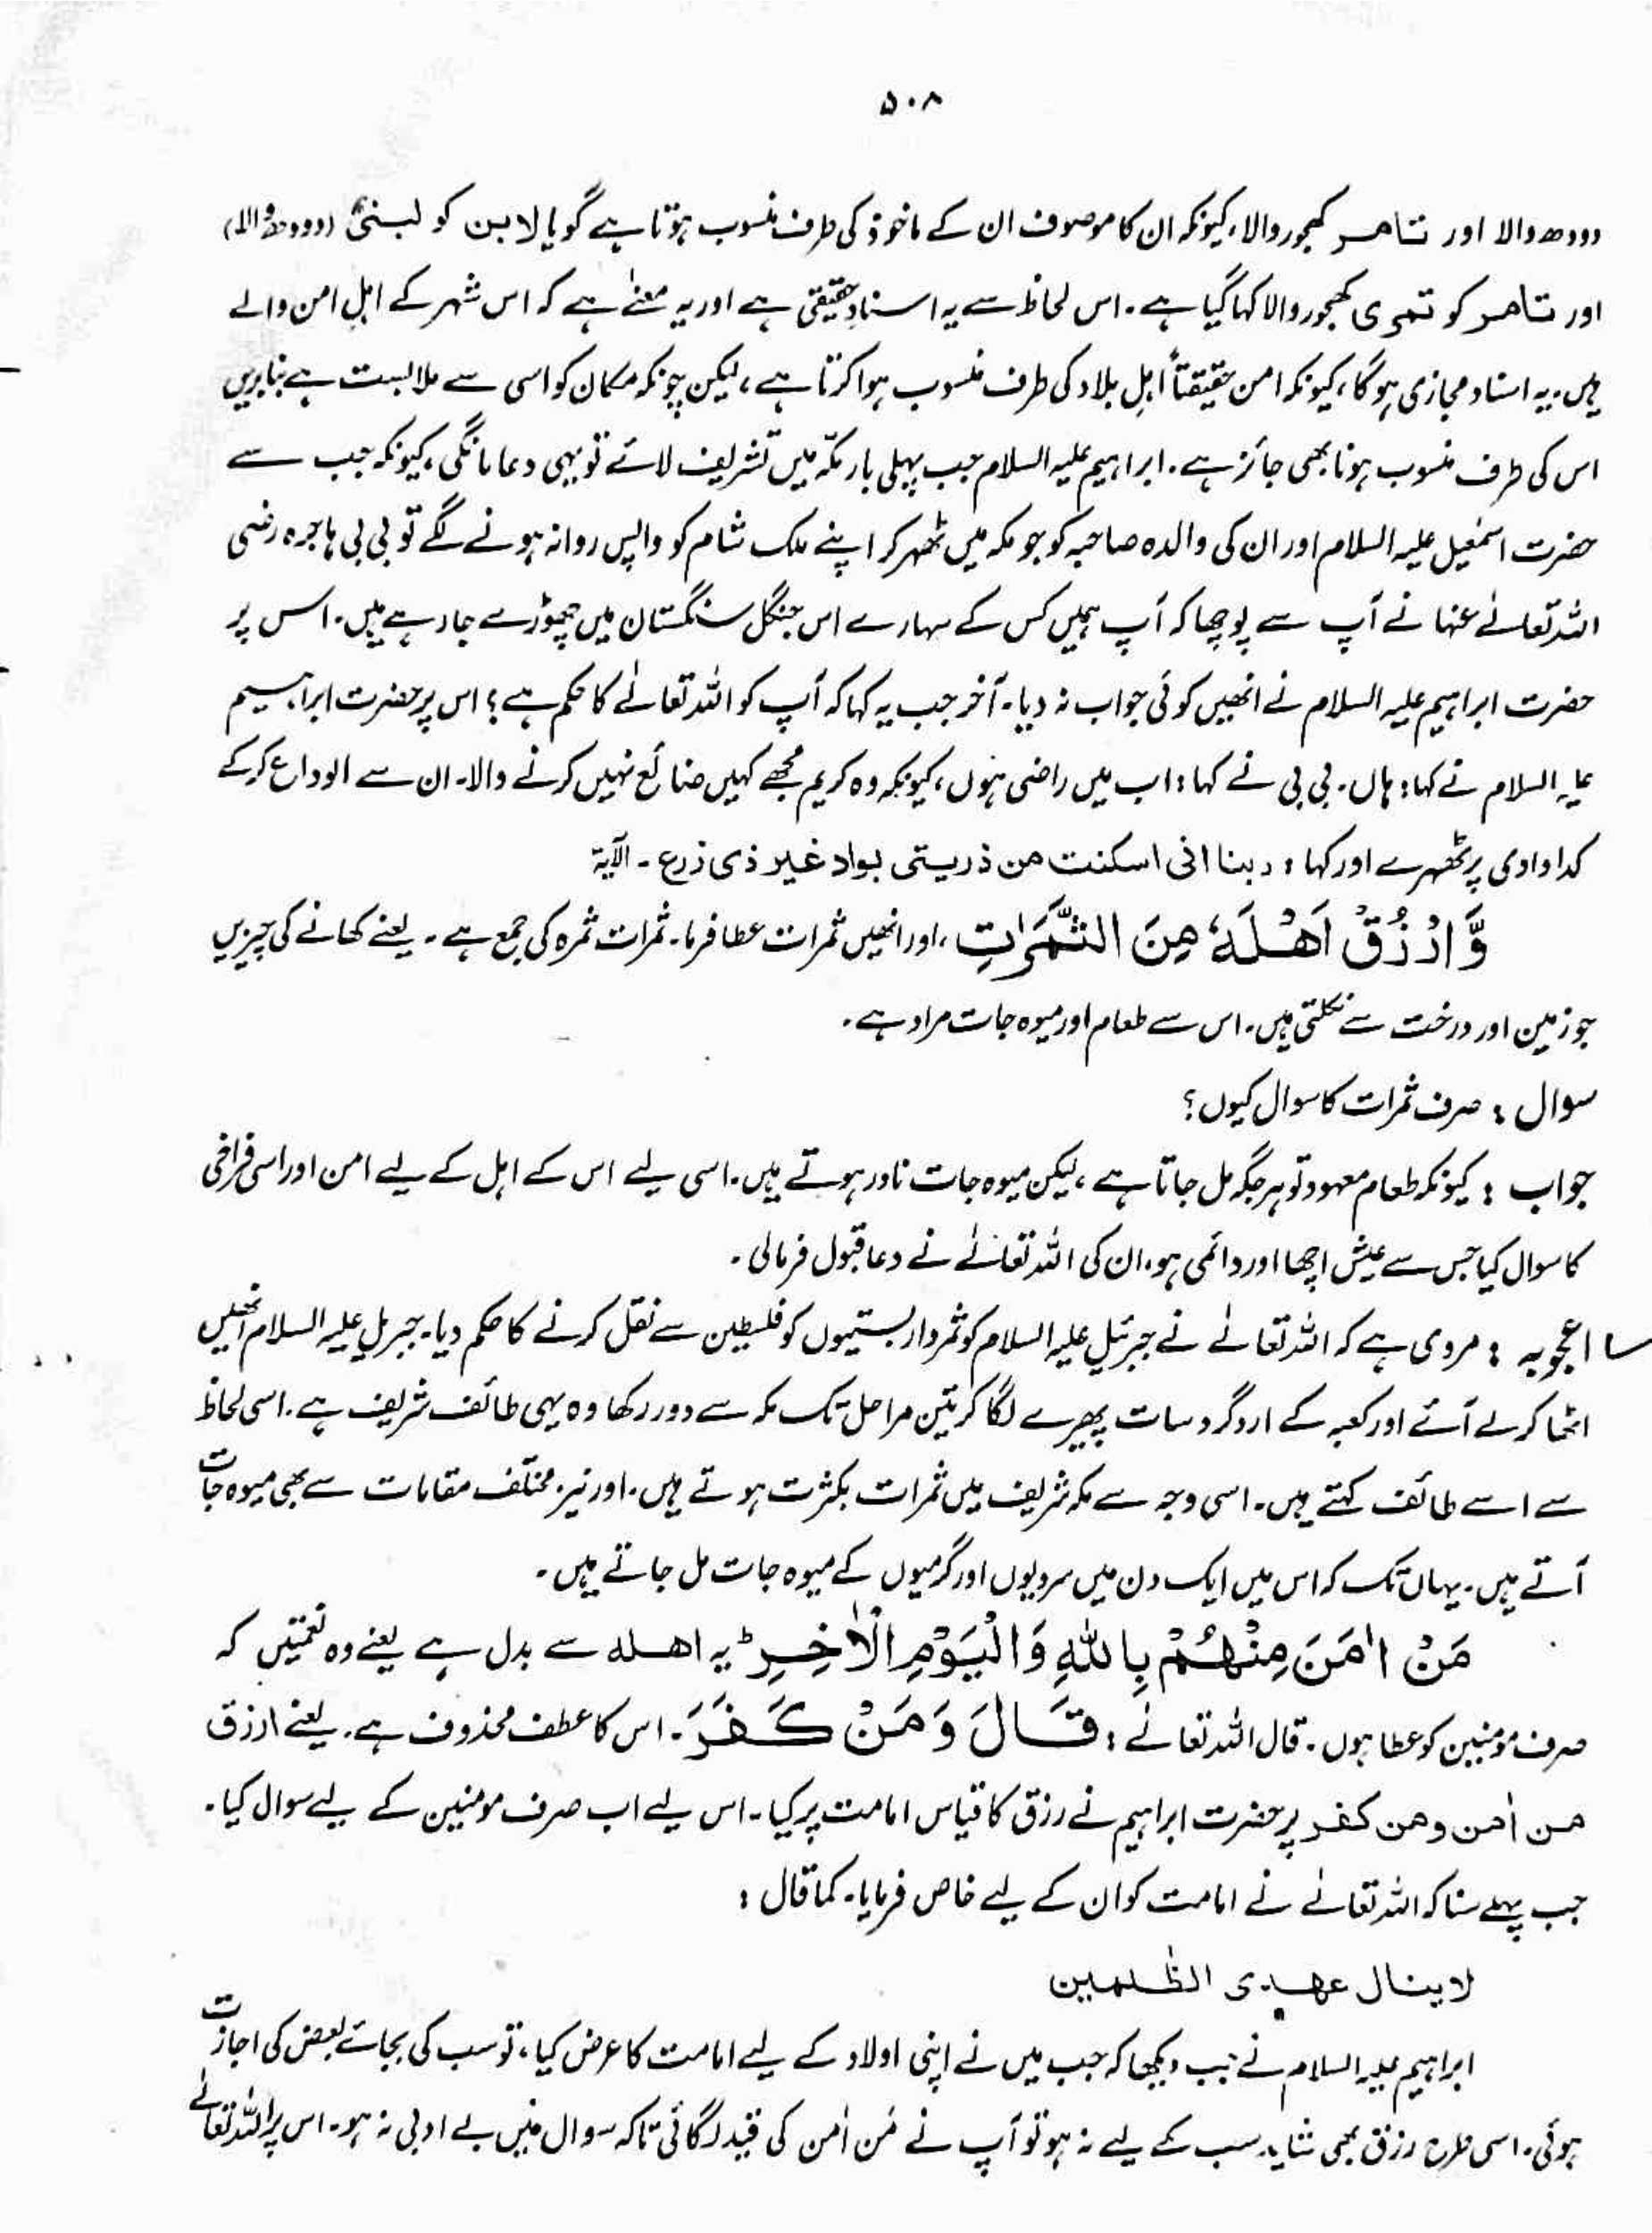 ۵۰۸
دودھ والا اور تامر کھجور والا، کیونکہ ان کا موصوف ان کے ماخوذ کی طرف منسوب ہوتا ہے گویا لابن کو لبنیٌ (دودھ والا)
اور تامر کو تمری کھجور والا کہا گیا ہے۔ اس لحاظ سے یہ اسنادِ حقیقی ہے اور یہ معنٰے ہے کہ اس شہر کے اہلِ امن والے
ہیں۔ یہ اسناد مجازی ہوگا، کیونکہ امن حقیقتاً اہلِ بلاد کی طرف منسوب ہوا کرتا ہے، لیکن چونکہ مکان کو اسی سے ملابست ہے بنابریں
اس کی طرف منسوب ہونا بھی جائز ہے۔ ابراہیم علیہ السلام جب پہلی بار مکّہ میں تشریف لائے تو یہی دعا مانگی، کیونکہ جب سے
حضرت اسمٰعیل علیہ السلام اور ان کی والدہ صاحبہ کو جو مکہ میں ٹھہر کر اپنے ملک شام کو واپس روانہ ہونے لگے تو بی بی ہاجرہ رضی
اللہ تعالےٰ عنہا نے آپ سے پوچھا کہ آپ ہمیں کس کے سہارے اس جنگل سنگستان میں چھوڑے جا رہے ہیں۔ اس پر
حضرت ابراہیم علیہ السلام نے انھیں کوئی جواب نہ دیا۔ آخر جب یہ کہا کہ آپ کو اللہ تعالےٰ کا حکم ہے؟ اس پر حضرت ابراہیم
علیہ السلام نے کہا: ہاں۔ بی بی نے کہا: اب میں راضی ہوں، کیونکہ وہ کریم مجھے کہیں ضائع نہیں کرنے والا۔ ان سے الوداع کرکے
کدا وادی پر ٹھہرے اور کہا: ربنا انی اسکنت من ذریتی بواد غیر ذی زرع۔ الآیۃ
وَّارْزُقْ اَھْلَہٗ مِنَ الثَّمَرٰتِ، اور انھیں ثمرات عطا فرما۔ ثمرات ثمرہ کی جمع ہے۔ یعنے کھانے کی چیزیں
جو زمین اور درخت سے نکلتی ہیں۔ اس سے طعام اور میوہ جات مراد ہے۔
سوال: صرف ثمرات کا سوال کیوں؟
جواب: کیونکہ طعام معہود تو ہر جگہ مل جاتا ہے، لیکن میوہ جات نادر ہوتے ہیں۔ اسی لیے اس کے اہل کے لیے امن اور اسی فراخی
کا سوال کیا جس سے عیش اچھا اور دائمی ہو، ان کی اللہ تعالےٰ نے دعا قبول فرمالی۔
اعجوبہ: مروی ہے کہ اللہ تعالےٰ نے جبرئیل علیہ السلام کو ثمردار بستیوں کو فلسطین سے نقل کرنے کا حکم دیا۔ جبریل علیہ السلام انھیں
اٹھا کر لے آئے اور کعبہ کے ارد گرد سات پھیرے لگا کر تین مراحل تک مکہ سے دور رکھا وہ یہی طائف شریف ہے۔ اسی لحاظ
سے اسے طائف کہتے ہیں۔ اسی وجہ سے مکہ شریف میں ثمرات بکثرت ہوتے ہیں۔ اور نیز مختلف مقامات سے بھی میوہ جات
آتے ہیں۔ یہاں تک کہ اس میں ایک دن میں سردیوں اور گرمیوں کے میوہ جات مل جاتے ہیں۔
مَنْ اٰمَنَ مِنْھُمْ بِاللہِ وَالْیَوْمِ الْاٰخِرِ ط یہ اھلہ سے بدل ہے یعنے وہ نعمتیں کہ
صرف مؤمنین کو عطا ہوں۔ قال اللہ تعالےٰ: قَالَ وَمَنْ کَفَرَ۔ اس کا عطف محذوف ہے۔ یعنے ارزق
من اٰمن ومن کفر پر حضرت ابراہیم نے رزق کا قیاس امامت پر کیا۔ اس لیے اب صرف مومنین کے لیے سوال کیا۔
جب پہلے سنا کہ اللہ تعالےٰ نے امامت کو ان کے لیے خاص فرمایا۔ کما قال:
لا ینال عھدی الظٰلمین
ابراہیم علیہ السلام نے جب دیکھا کہ جب میں نے اپنی اولاد کے لیے امامت کا عرض کیا، تو سب کی بجائے بعض کی اجازت
ہوئی۔ اسی طرح رزق بھی شاید سب کے لیے نہ ہو تو آپ نے مَن اٰمن کی قید لگائی تاکہ سوال میں بے ادبی نہ ہو۔ اس پر اللہ تعالےٰ